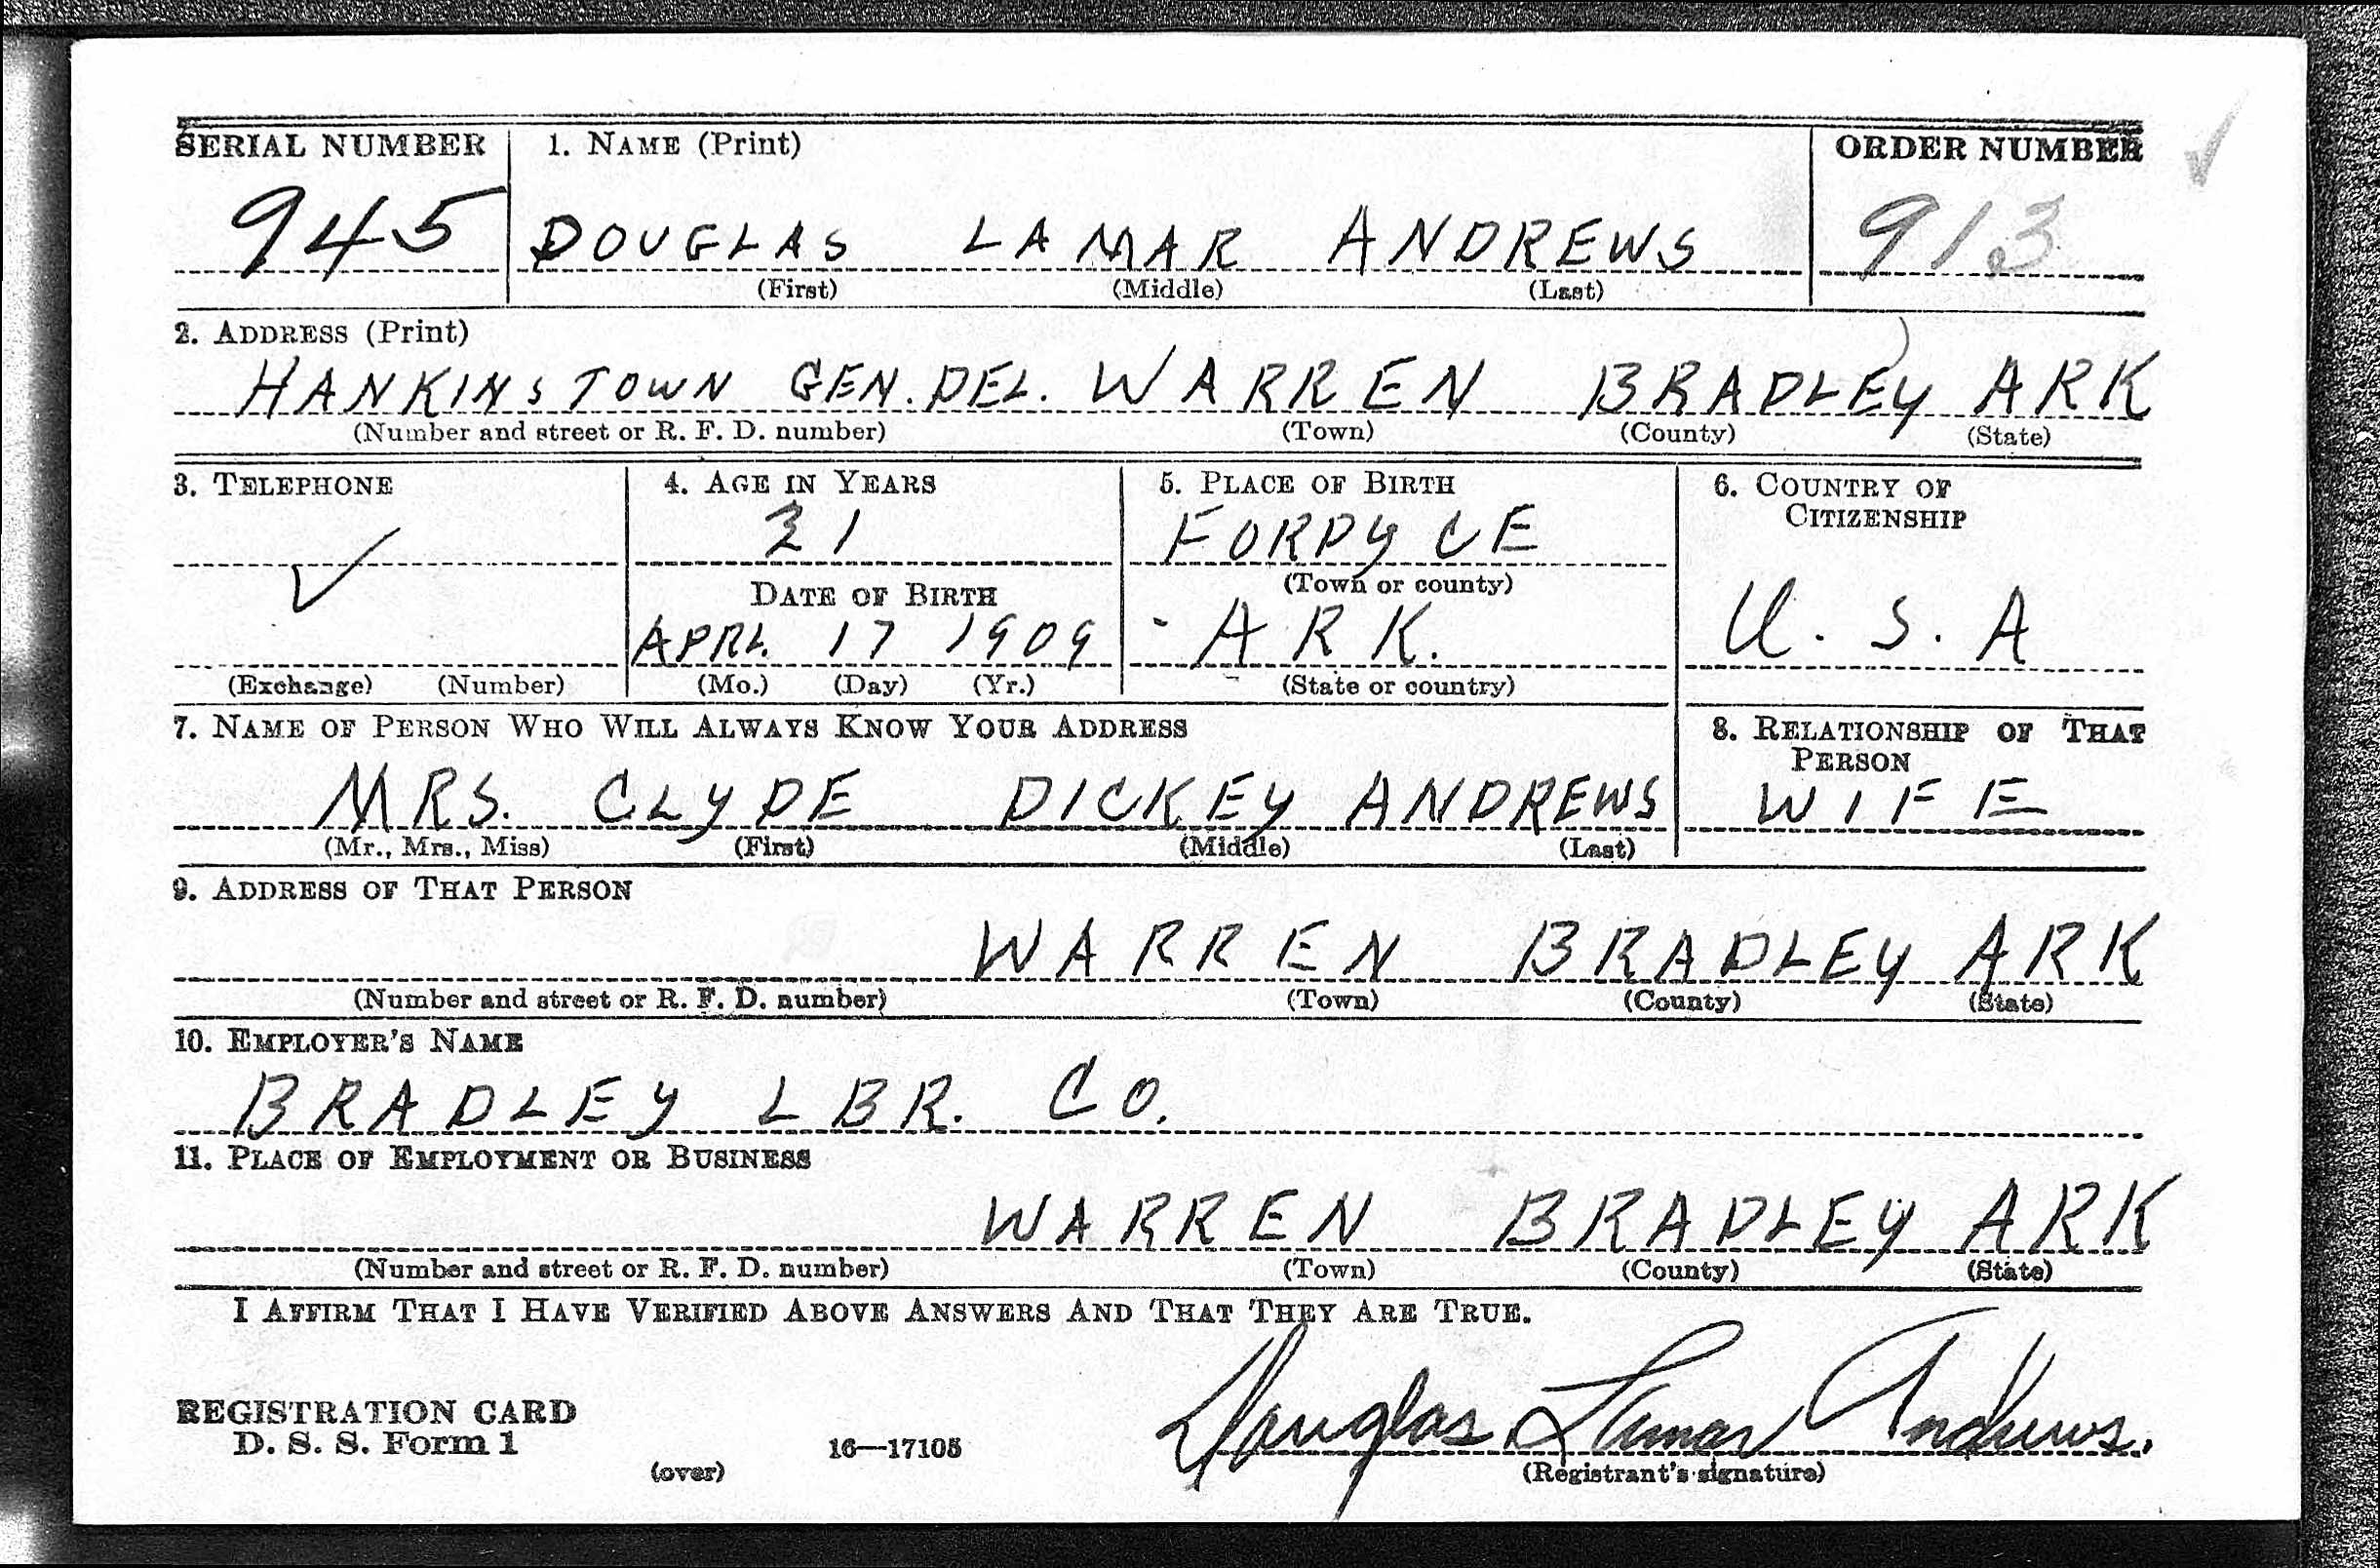 SERIAL NUMBER 1. NAME (Print) ORDER NUMBER
945 DOUGLAS LAMAR ANDREWS 913
(First) (Middle) (Last)
2. ADDRESS (Print)
HANKINSTOWN GEN. DEL. WARREN BRADLEY ARK
(Number and street or R. F. D. number) (Town) (County) (State)
3. TELEPHONE 4. AGE IN YEARS 5. PLACE OF BIRTH 6. COUNTRY OF
CITIZENSHIP
31 FORDYCE
(Town or county)
DATE OF BIRTH
APRL. 17 1909 ARK. U. S. A
(Exchange) (Number) (Mo.) (Day) (Yr.) (State or country)
7. NAME OF PERSON WHO WILL ALWAYS KNOW YOUR ADDRESS 8. RELATIONSHIP OF THAT
PERSON
MRS. CLYDE DICKEY ANDREWS WIFE
(Mr., Mrs., Miss) (First) (Middle) (Last)
9. ADDRESS OF THAT PERSON
WARREN BRADLEY ARK
(Number and street or R. F. D. number) (Town) (County) (State)
10. EMPLOYER'S NAME
BRADLEY LBR. CO.
11. PLACE OF EMPLOYMENT OR BUSINESS
WARREN BRADLEY ARK
(Number and street or R. F. D. number) (Town) (County) (State)
I AFFIRM THAT I HAVE VERIFIED ABOVE ANSWERS AND THAT THEY ARE TRUE.
Douglas Lamar Andrews.
REGISTRATION CARD
D. S. S. Form 1 16—17105
(over) (Registrant's signature)